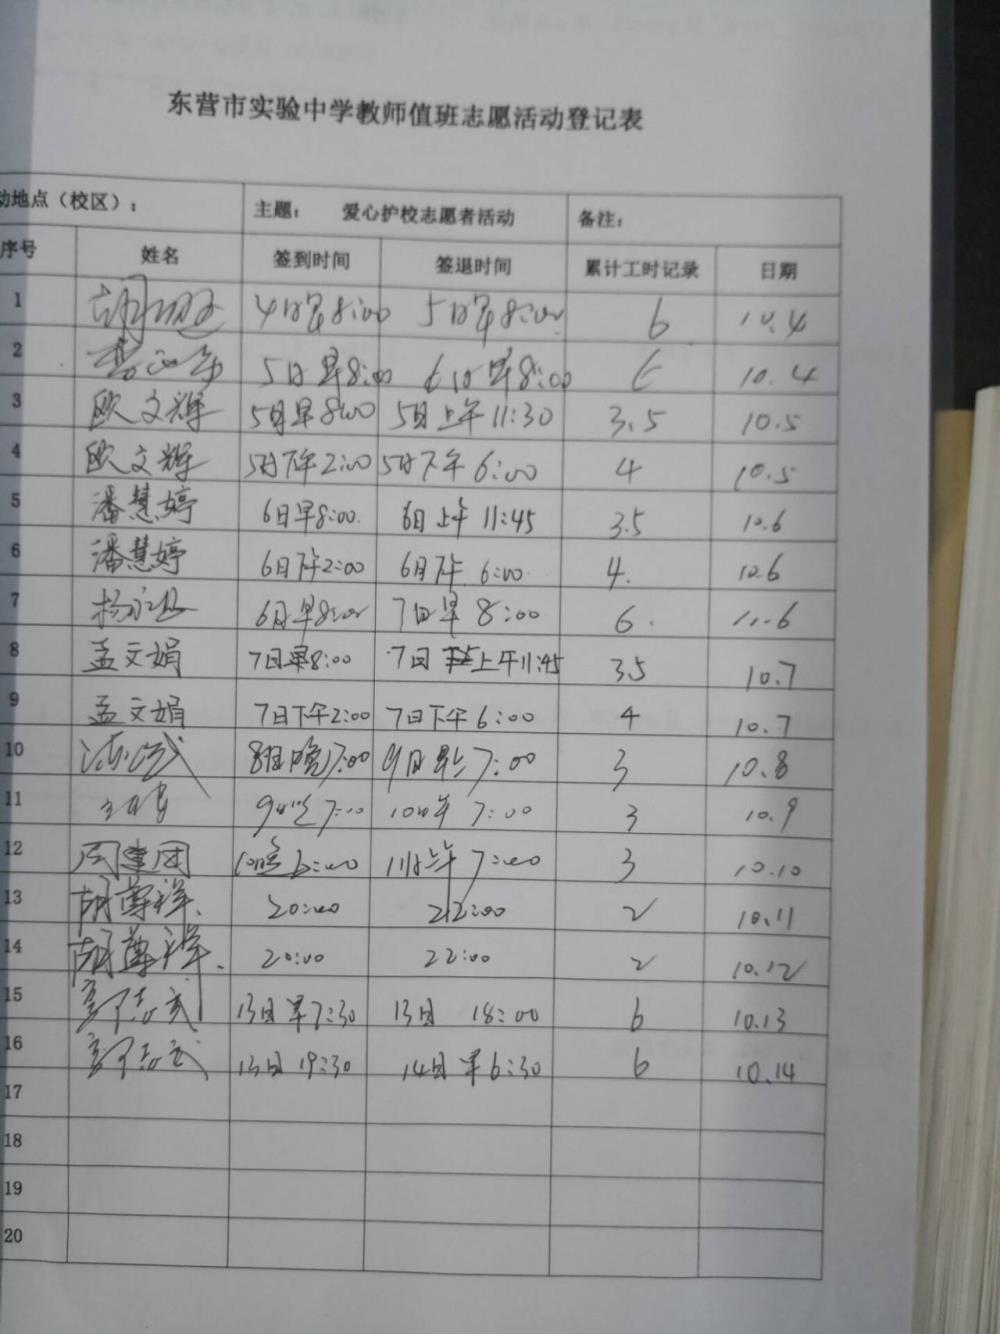 东营市实验中学教师值班志愿活动登记表
动地点（校区）： 主题： 爱心护校志愿者活动 备注：
序号 姓名 签到时间 签退时间 累计工时记录 日期
1 4日早8:00 5日早8:00 6 10.4
2 5日早8:00 6日早8:00 6 10.4
3 欧文辉 5日早8:00 5日上午11:30 3.5 10.5
4 欧文辉 5日下午2:00 5日下午6:00 4 10.5
5 潘慧婷 6日早8:00. 6日上午11:45 3.5 10.6
6 潘慧婷 6日下午2:00 6日下午6:00. 4. 10.6
7 6日早8:00 7日早8:00 6. 11.6
8 孟文娟 7日早8:00 7日上午11:45 3.5 10.7
9 孟文娟 7日下午2:00 7日下午6:00 4 10.7
10 8日晚7:00 9日早7:00 3 10.8
11 9日晚7:00 10日早7:00 3 10.9
12 周建团 10晚6:00 11日早7:00 3 10.10
13 胡尊祥. 20:00 22:00 2 10.11
14 胡尊祥. 20:00 22:00 2 10.12
15 13日早7:30 13日 18:00 6 10.13
16 13日19:30 14日早6:30 6 10.14
17
18
19
20